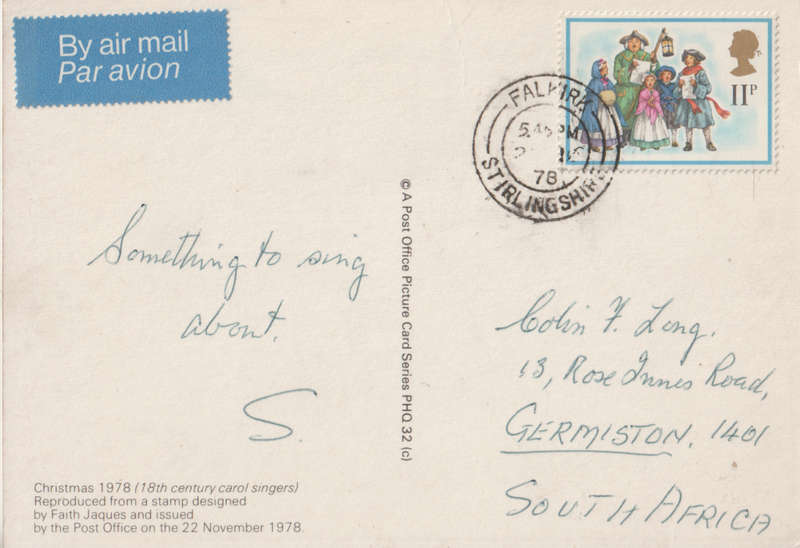 By air mail
Par avion
11P
FALKIRK
78
STIRLINGSHIRE
© A Post Office Picture Card Series PHQ 32 (c)
Something to sing
about.
S.
Colin F. Long.
13, Rose Innis Road,
GERMISTON, 1401
SOUTH AFRICA
Christmas 1978 (18th century carol singers)
Reproduced from a stamp designed
by Faith Jaques and issued
by the Post Office on the 22 November 1978.